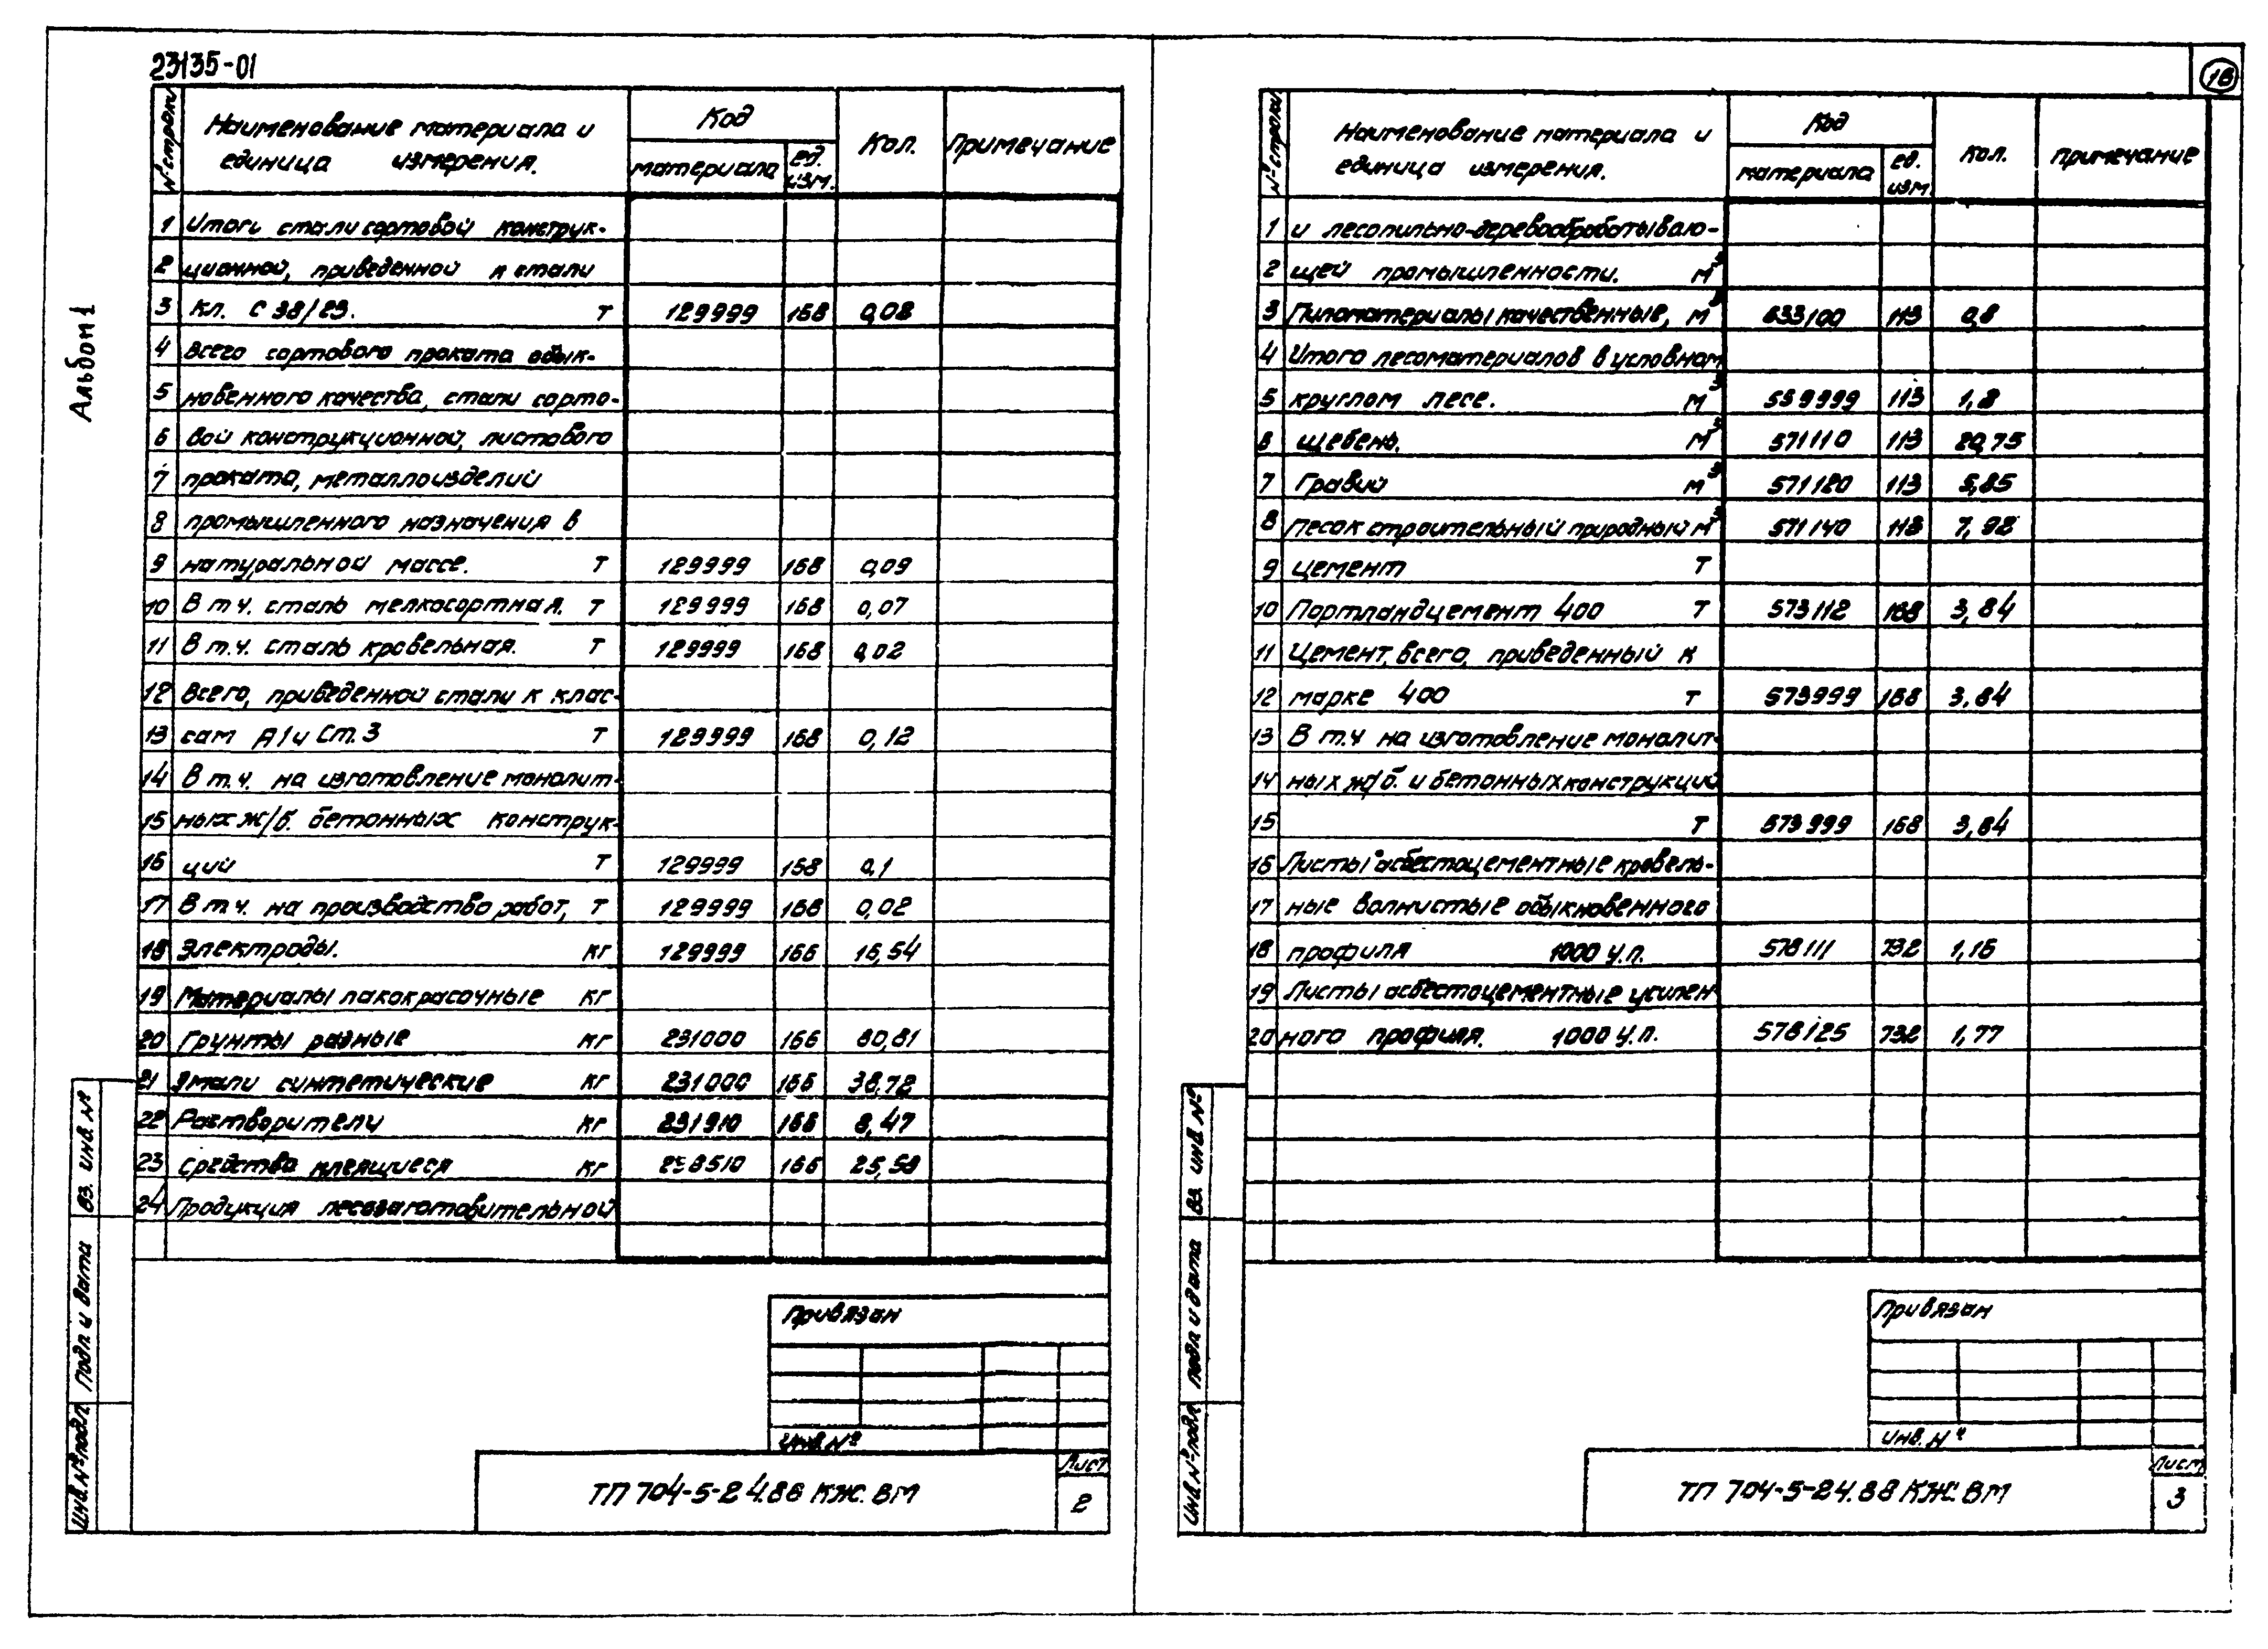 23135-01
Альбом 1
№ строки
Наименование материала и единица измерения.
Код
материала
ед. изм.
Кол.
Примечание
1 Итого стали сортовой конструк-
2 ционной, приведенной к стали
3 кл. С 38/23. Т 129999 168 0,08
4 Всего сортового проката обык-
5 новенного качества, стали сорто-
6 вой конструкционной, листового
7 проката, металлоизделий
8 промышленного назначения в
9 натуральной массе. Т 129999 168 0,09
10 В т.ч. сталь мелкосортная. Т 129999 168 0,07
11 В т.ч. сталь кровельная. Т 129999 168 0,02
12 Всего, приведенной стали к клас-
13 сам А1 и Ст.3 Т 129999 168 0,12
14 В т.ч. на изготовление монолит-
15 ных ж/б. бетонных конструк-
16 ций Т 129999 168 0,1
17 В т.ч. на производство работ, Т 129999 168 0,02
18 Электроды. кг 129999 166 16,54
19 Материалы лакокрасочные кг
20 Грунты разные кг 231000 166 80,81
21 Эмали синтетические кг 231000 166 38,72
22 Растворители кг 231910 166 8,47
23 Средства клеящиеся кг 166 25,58
24 Продукция лесозаготовительной
Привязан
Инв. №
ТП 704-5-24.88 КЖ.ВМ
Лист
2
Вз. инв. №
Подп. и дата
Инв. № подл
18
№ строки
Наименование материала и единица измерения.
Код
материала
ед. изм
Кол.
примечание
1 и лесопильно-деревообрабатываю-
2 щей промышленности. м³
3 Пиломатериалы качественные, м³ 533100 113 0,8
4 Итого лесоматериалов в условном
5 круглом лесе. м³ 539999 113 1,8
6 щебень. м³ 571110 113 20,75
7 Гравий м³ 571120 113 5,85
8 Песок строительный природный м³ 571140 113 7,98
9 цемент Т
10 Портландцемент 400 Т 573112 168 3,84
11 Цемент, всего, приведенный к
12 марке 400 Т 573999 168 3,84
13 В т.ч на изготовление монолит-
14 ных ж/б. и бетонных конструкций
15 Т 573999 168 3,84
16 Листы асбестоцементные кровель-
17 ные волнистые обыкновенного
18 профиля 1000 у.п. 578111 732 1,16
19 Листы асбестоцементные усилен-
20 ного профиля. 1000 у.п. 578125 732 1,77
Привязан
Инв. №
ТП 704-5-24.88 КЖ.ВМ
Лист
3
Вз. инв. №
Подп. и дата
Инв. № подл